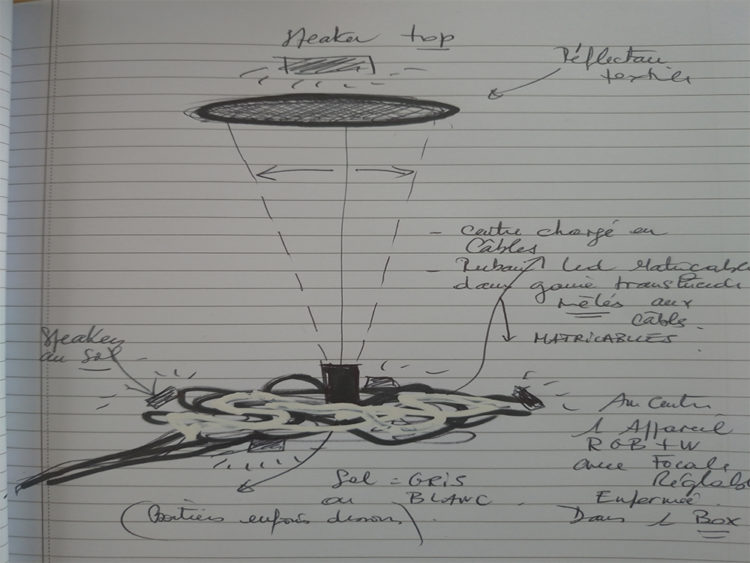 Speaker top
Réflecteur
textile
- Centre chargé en
Câbles
- Ruban Led Matricable
dans gaine translucide
mêlés aux
câbles.
MATRICABLES
Speaker
au Sol
Au Centre
1 Appareil
RGB + W
avec Focale
Réglable
Enfermée
Dans 1 Box
Sol = GRIS
ou BLANC
(Boitiers enfouis dessous)